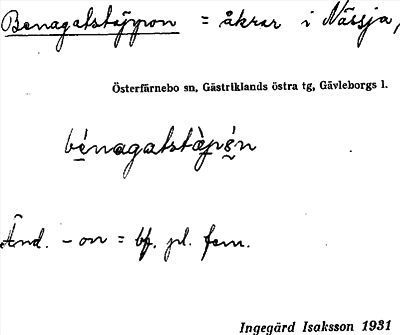 Benagatstäppon = åkrar i Nässja,
Österfärnebo sn, Gästriklands östra tg, Gävleborgs l.
bénagatstæ̀pén
Änd. - on = bf. pl. fem.
Ingegärd Isaksson 1931